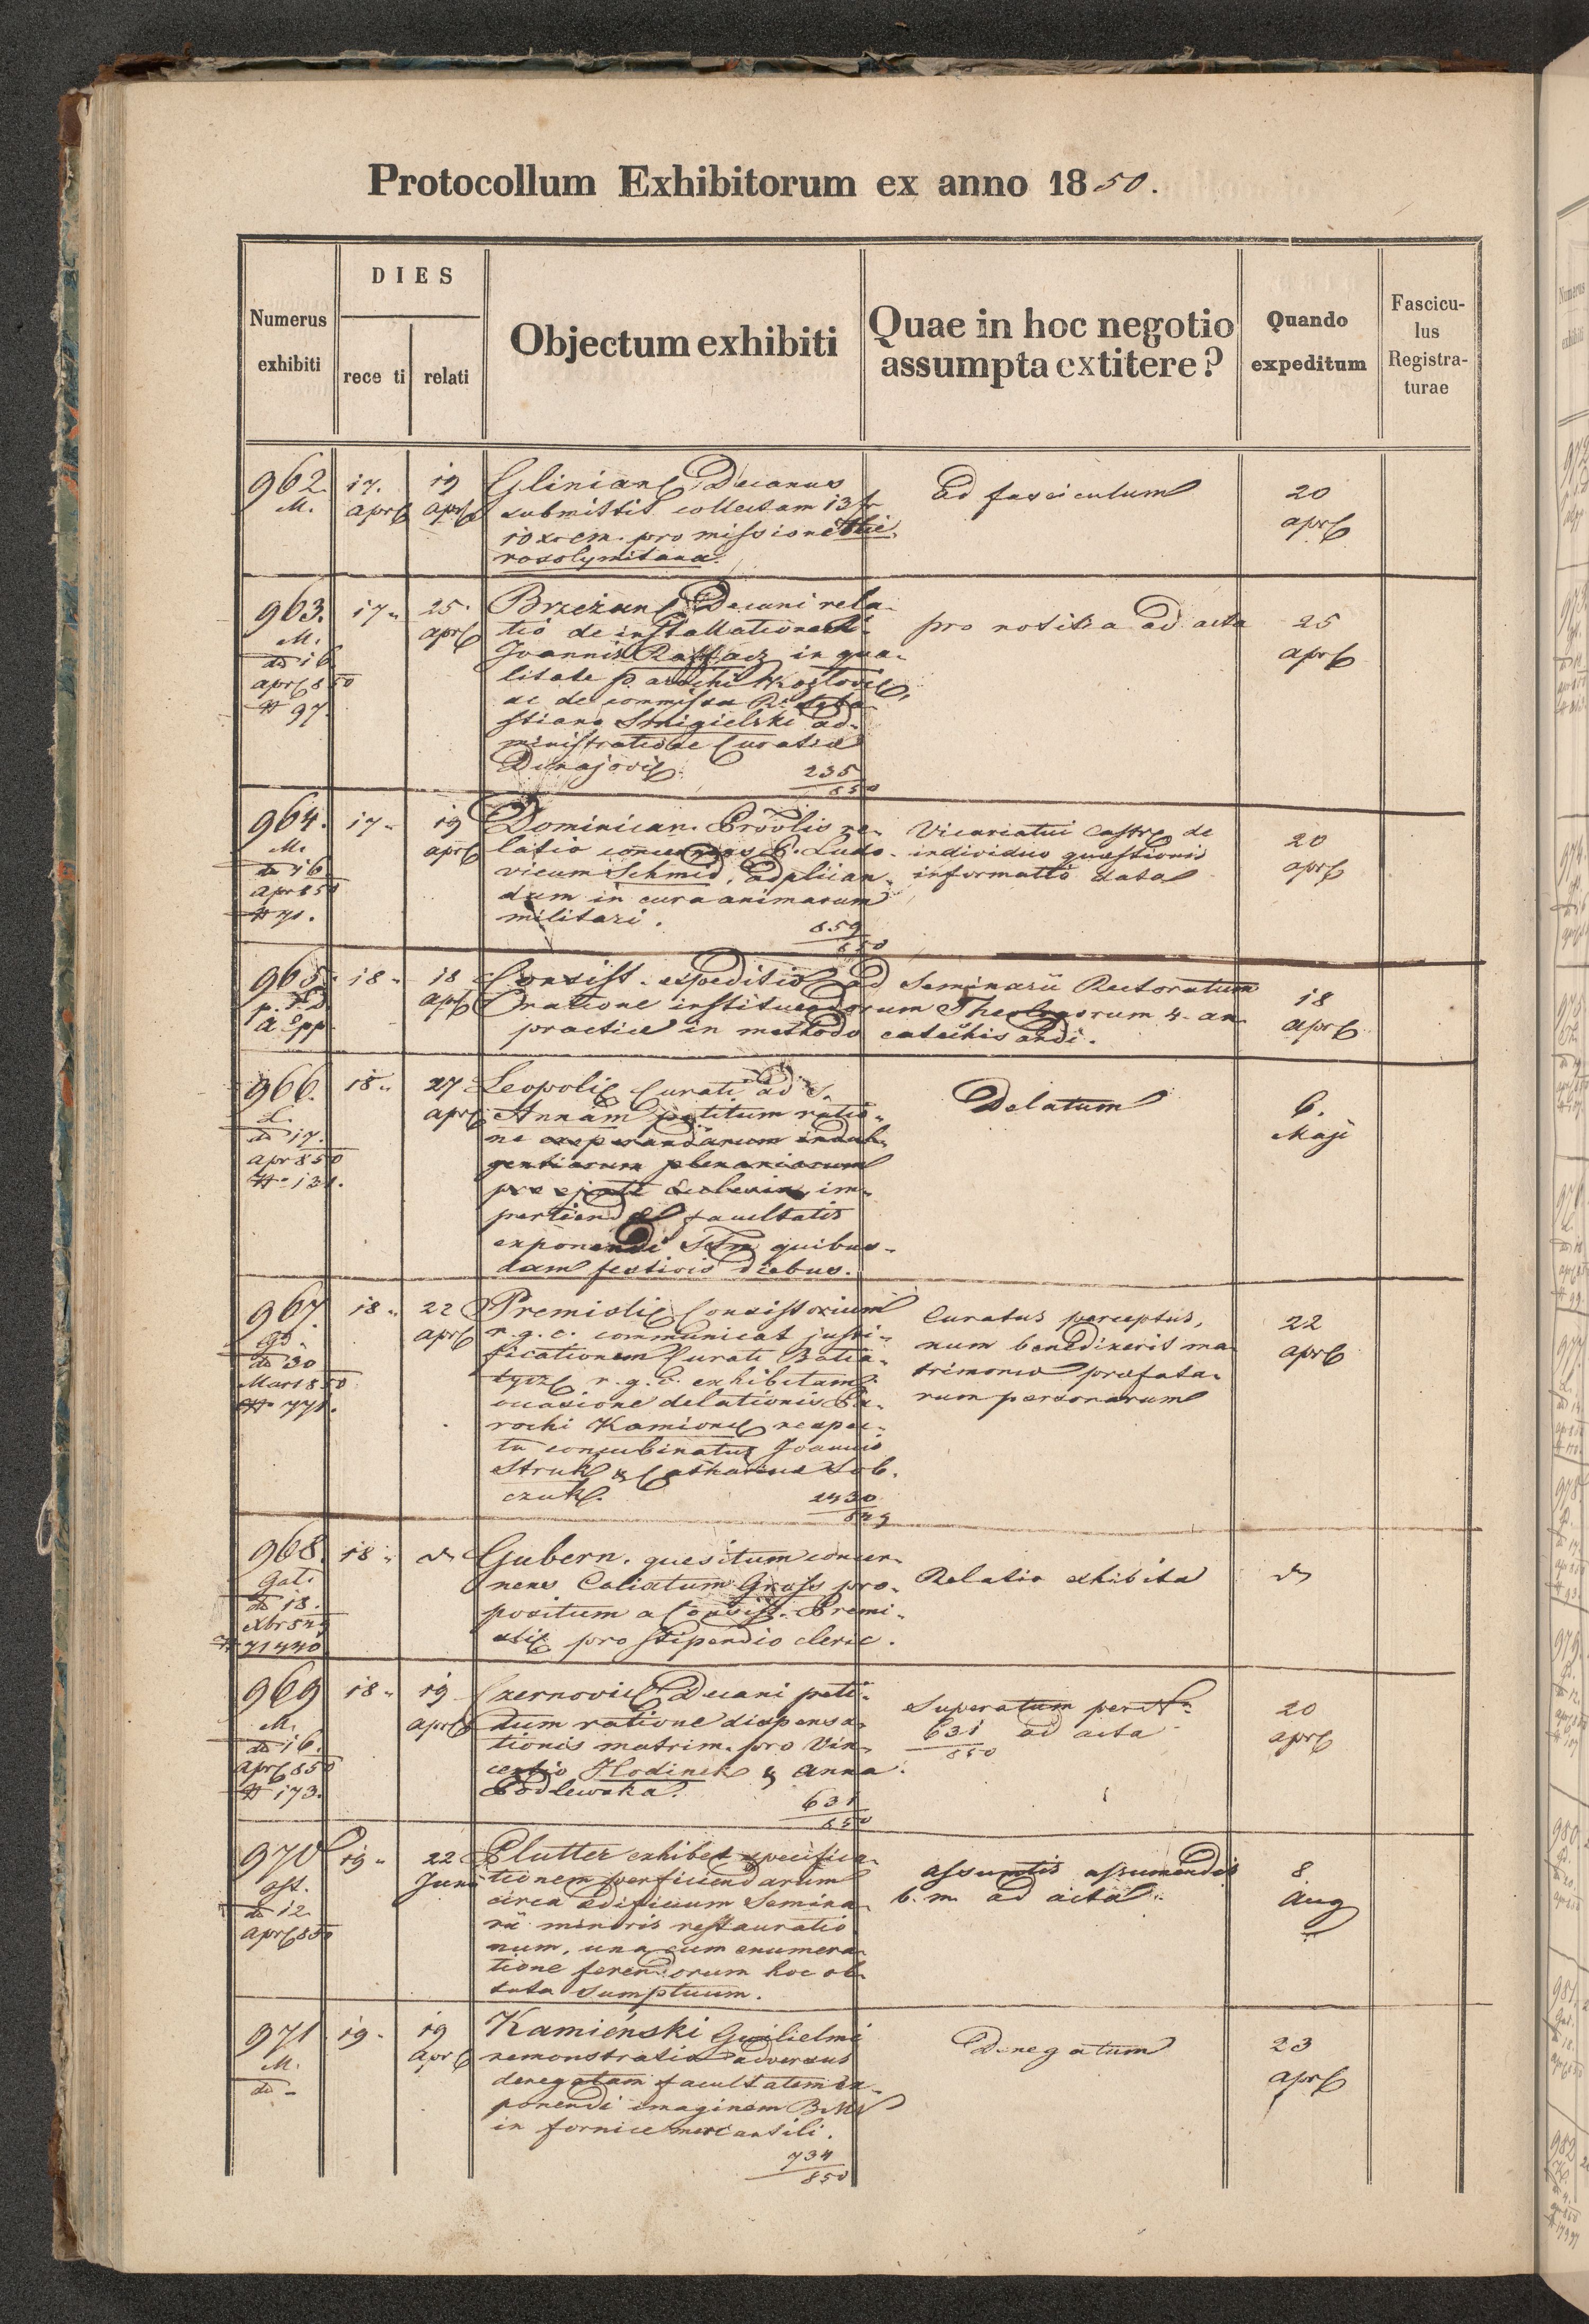 Protocollum Exhibitorum ex anno 1850.
Numerus exhibiti
DIES
rece ti
relati
Objectum exhibiti
Quae in hoc negotio assumpta extitere?
Quando expeditum
Fascicu-
lus
Registra-
turae
962.
M.
17.
apr
19
apr
Glinian Decanus
submittit collectam 13 fr
10 xr cm. pro missione Hie
rosolymitana.
ad fasciculum
20
apr
963.
M.
do 16
apr 850
N 97.
17"
25.
apr
Brzeżan Decani rela-
tio de installatione
Joannis Raffacz in qua-
litate parochi Kozlovic,
ac de commissa Rdo Seba-
stiano Smigielski ad-
ministratione Curatiae
Dunajovic.
235
850
pro notitia ad acta
25
apr
964.
M.
do 16
apr 850
N 71.
17"
19
apr
Dominican. Provlis re-
latio concernens P. Ludo-
vicum Schmid, adplican-
dum in cura animarum
militari.
859
850
Vicariatui Castr de
individuo quaestionis
informatio data
20
apr
965.
18"
18
apr
Consist. expeditio ad Seminarii Rectoratum
ratione instituendorum Theologorum 4. an
practice in methodo catechisandi.
18
apr
966.
L.
do 17.
apr 850
N 131.
18"
27
apr
Leopoli Curati ad S.
Annam petitum ratio-
ne exoperandarum indul-
gentiarum plenariarum
pro ejate Ecclesia, im-
pertiendae facultatis
exponendi SSm quibus-
dam festivis diebus.
Delatum
6.
Maji
967
do 30
Mart 850
N 771.
18"
22
apr
Premisli Consistorium
r. g. c. communicat justi-
ficationem Curati Batia-
tycz r. g. c. exhibitam
occasione delationis Pa-
rochi Kamion respec-
tu concubinatus Joannis
Struk & Catharina Sob-
czuk.
2430
849
Curatus perceptus,
num benedixerit ma
trimonio praefata-
rum personarum
22
apr
968.
Gal.
do 18.
Xbr 849
N 71440
18"
Gubern. quesitum concer-
nens Calixtum Grass pro-
positum a Consist. Premi-
sli pro stipendio cleric.
Relatio exhibita
969
M.
do 16.
apr 850
N 173.
18"
19
apr
Czernovic Decani peti-
tum ratione dispensa-
tionis matrim. pro Vin-
centio Hodinek & Anna
Podlewska.
631
850
Superatum per N
631
850
ad acta
20
apr
970
ost.
do 12
apr 850
19"
22
Juni
Plutter exhibet specifica-
tionem perficiendarum
circa aedificium Semina-
rii minoris restauratio
num, una cum enumera-
tione ferendorum hoc ob-
tutu sumptuum.
assumtis assumendis
b. m. ad acta.
8
Aug
971
M.
do -
19"
19
apr
Kamieński Guilielmi
remonstratio adversus
denegatam facultatem ex-
ponendi imaginem BMV
in fornice mercantili.
734
850
Denegatum
23
apr